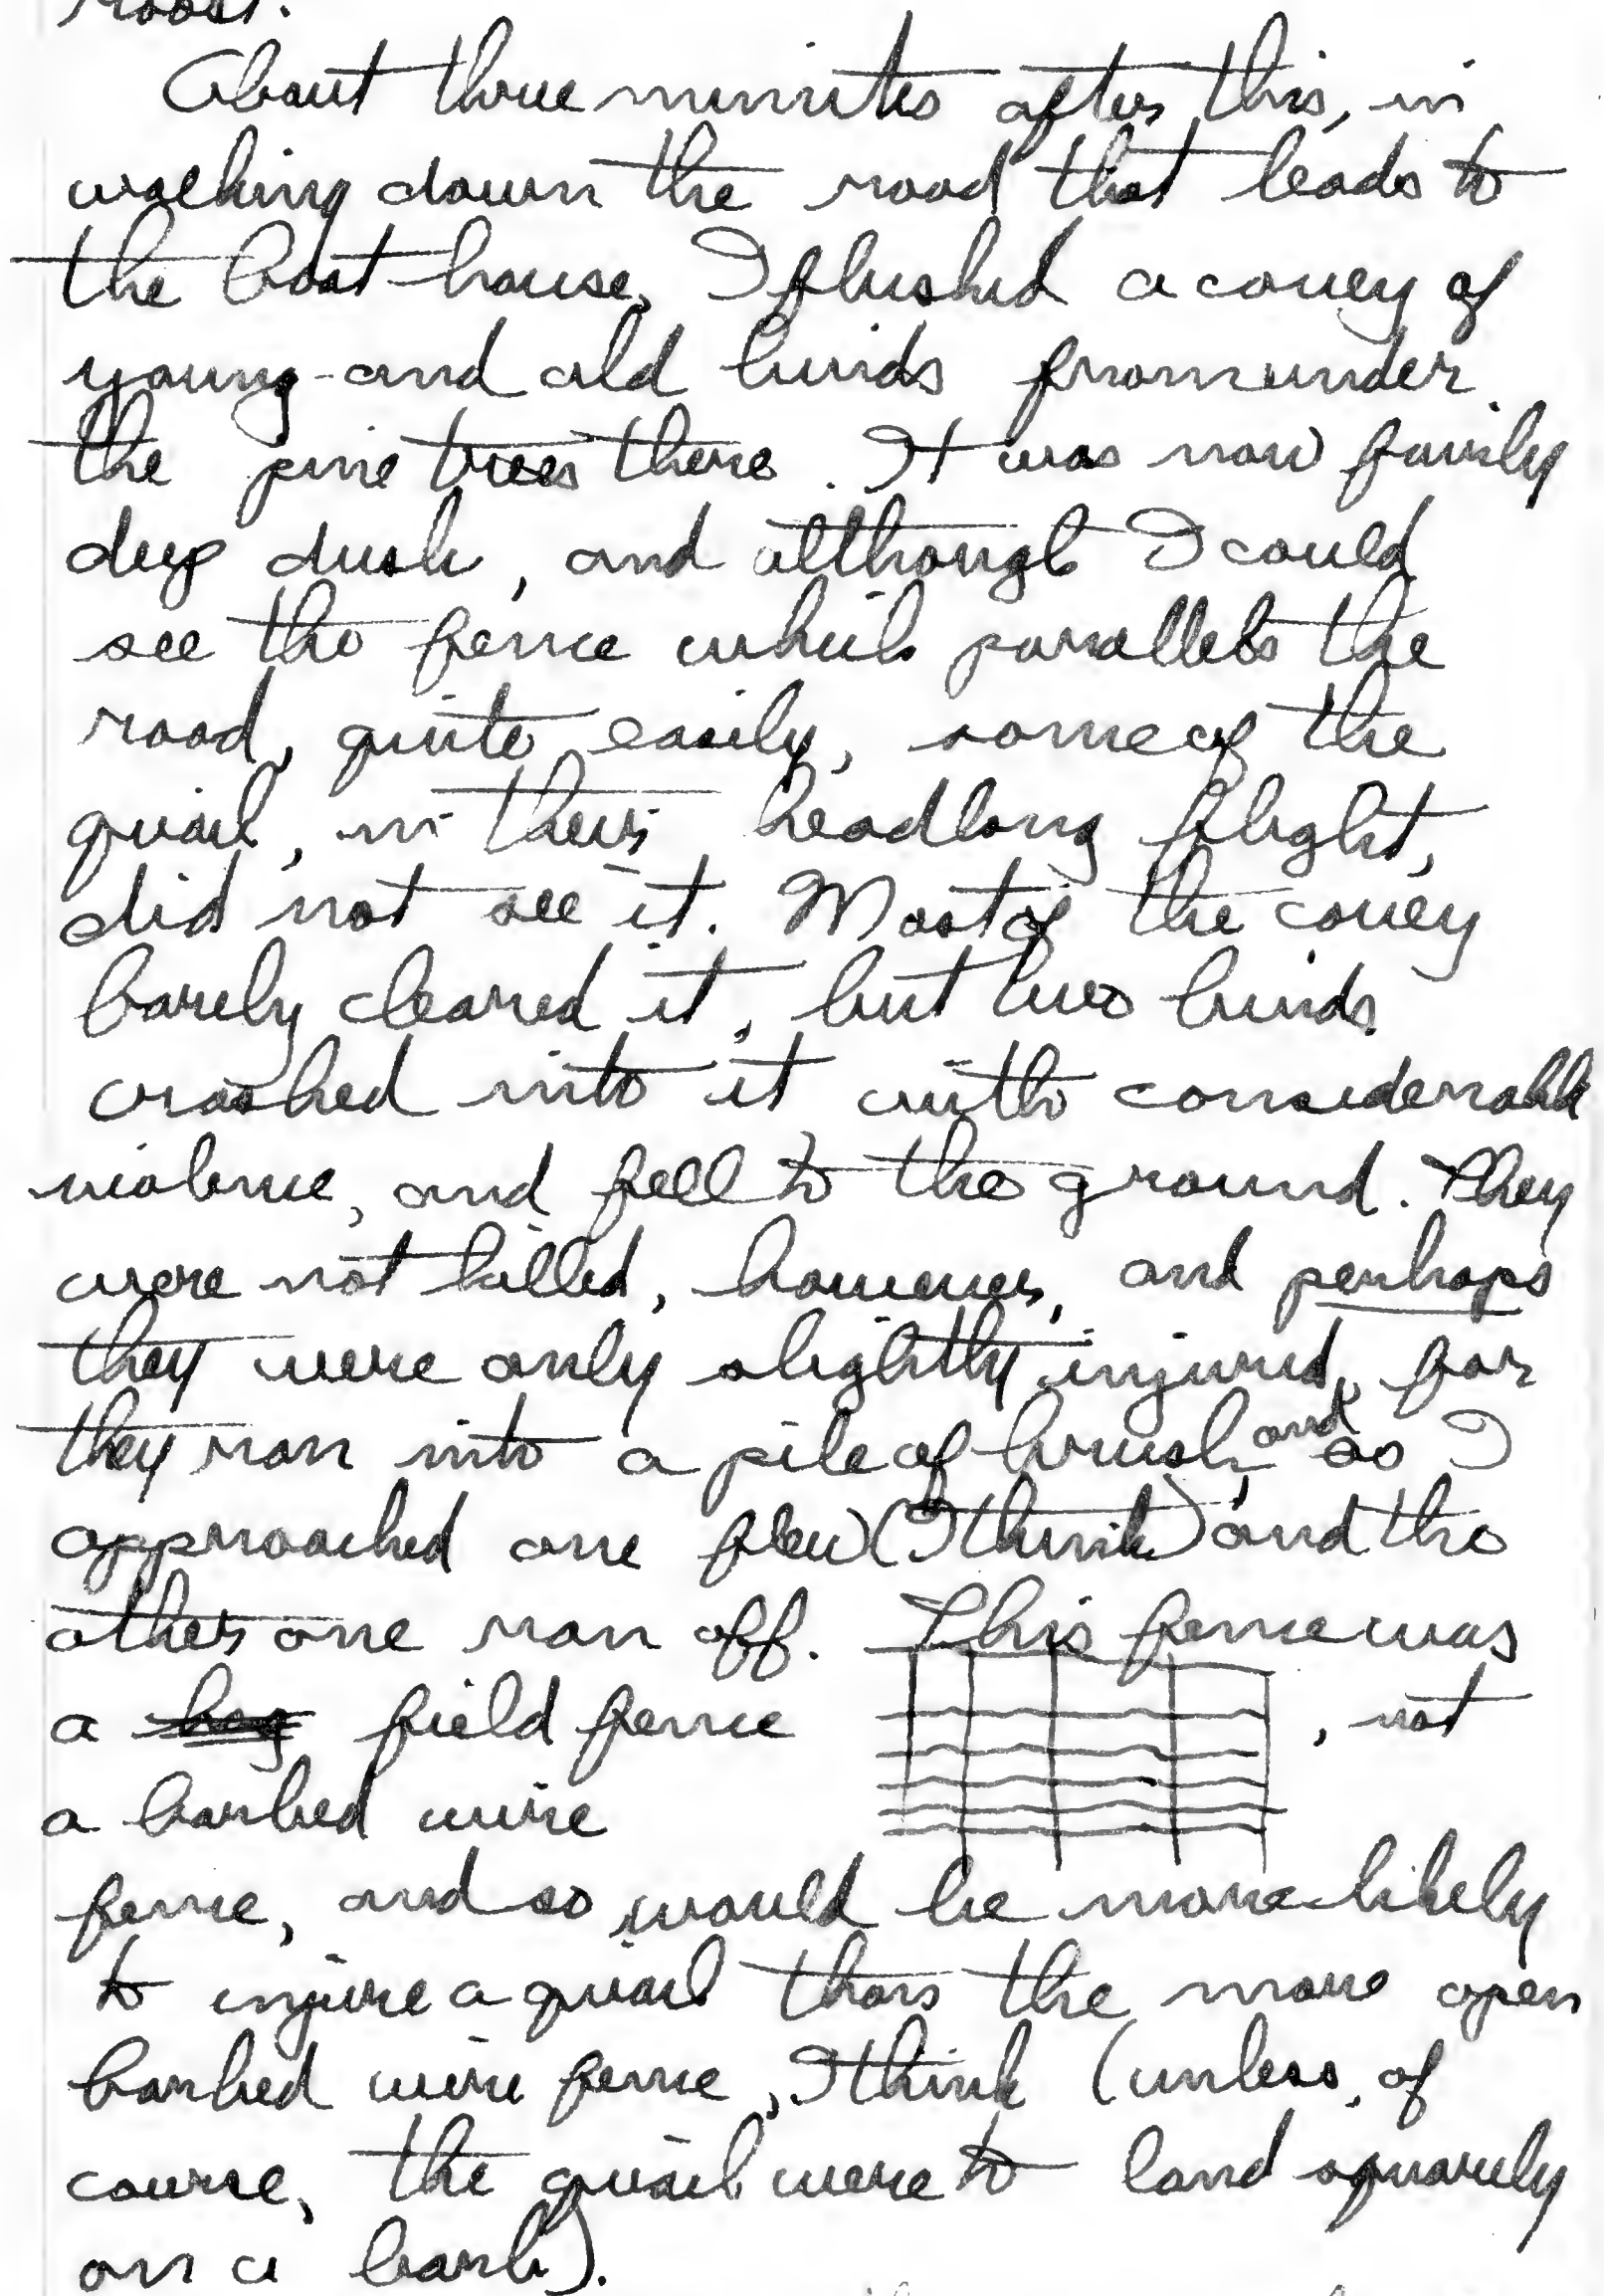 roost.
About three minutes after this, in
walking down the road that leads to
the boat-house, I flushed a covey of
young and old birds from under
the pine trees there. It was now fairly
deep dusk, and although I could
see the fence which parallels the
road, quite easily, some of the
quail, in their headlong flight,
did not see it. Most of the covey
barely cleared it, but two birds
crashed into it with considerable
violence, and fell to the ground. They
were not killed, however, and perhaps
they were only slightly injured, for
they ran into a pile of brush, and as I
approached one flew (I think) and the
other one ran off. This fence was
a hog field fence , not
a barbed wire
fence, and so would be more likely
to injure a quail than the more open
barbed wire fence, I think (unless, of
course, the quail were to land squarely
on a barb).